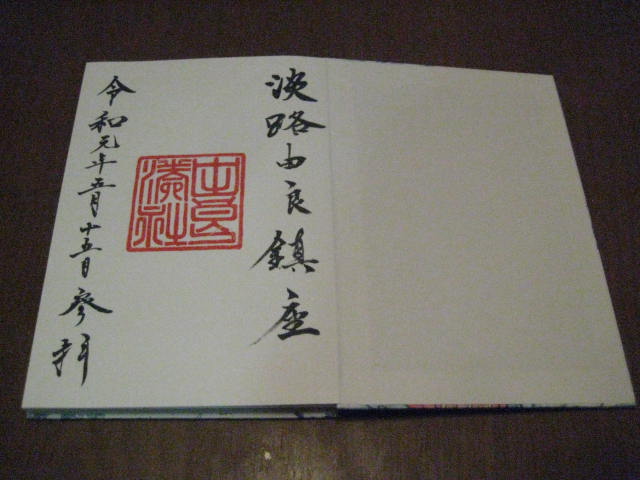 淡路由良鎮座
由良
湊社
令和元年五月十五日参拝